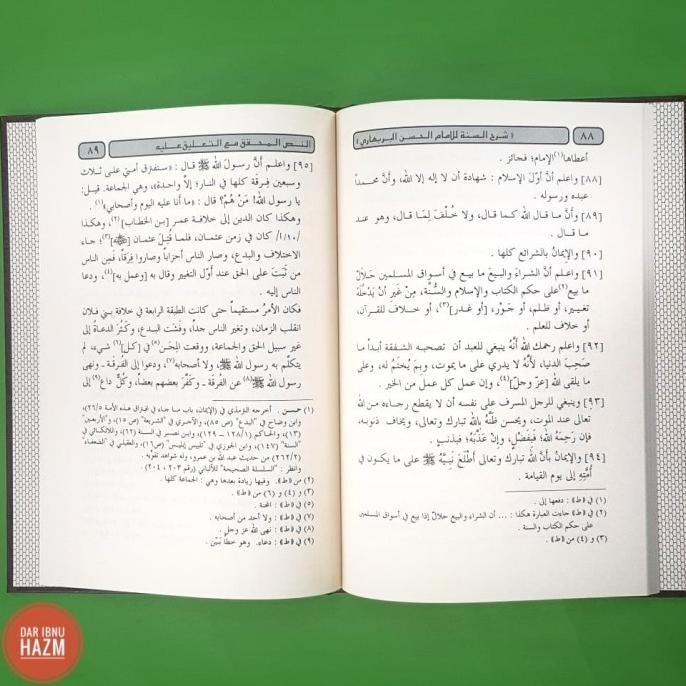 ٨٨
﴿شرح السنة للإمام الحسن البربهاري﴾
أعطاها(١)الإمام؛ فجائز.
[٨٨] واعلم أن أوّلَ الإسلام: شهادة أن لا إله إلا الله، وأنَّ محمداً
عبده ورسوله.
[٨٩] وأنَّ ما قال الله كما قال، ولا خُلْفَ لِمَا قال، وهو عند
ما قال.
[٩٠] والإيمانُ بالشرائع كلها.
[٩١] واعلم أنَّ الشراءَ والبيعَ ما بيع في أسواق المسلمين حَلالٌ
ما بيع(٢)على حكم الكتاب والإسلام والسُّنَّة، مِنْ غَيرِ أَنْ يَدْخُلَهُ
تغيير، أو ظلم، أو جَوْر، [أو غدر](٣)، أو خلاف للقرآن،
أو خلاف للعلم.
[٩٢] واعلم رحمك الله أَنَّهُ ينبغي للعبد أن تصحبه الشفقة أبداً ما
صَحِبَ الدنيا، لأَنَّهُ لا يدري على ما يموت، وبِمَ يُختمُ له، وعلى
ما يلقى الله [عزّ وجلّ](٤)، وإن عمل كل عمل من الخير.
[٩٣] وينبغي للرجل المسرف على نفسه أن لا يقطع رجاءه من الله
تعالى عند الموت، ويحسن ظَنَّهُ بالله تبارك وتعالى، ويخاف ذنوبه،
فإن رَحِمَهُ اللهُ؛ فَبِفَضْلٍ، وإنْ عَذَّبَهُ؛ فبذنبٍ.
[٩٤] والإيمانُ بأنَّ الله تبارك وتعالى أَطْلَعَ نَبِيَّهُ ﷺ على ما يكون في
أُمَّتِهِ إلى يوم القيامة.
(١) في «ط»: دفعها إلى.
(٢) في «ط» جاءت العبارة هكذا: ... أن الشراء والبيع حلالٌ إذا بيع في أسواق المسلمين
على حكم الكتاب والسنة.
(٣) و (٤) من «ط».
النص المحقق مع التعليق عليه
٨٩
[٩٥] واعلم أنَّ رسولَ الله ﷺ قال: «ستفترق أمتي على ثلاث
وسبعين فِرقَة كلها في النار؛ إلاَّ واحدة»، وهي الجماعة. قيل:
يا رسولَ الله! مَنْ هُمْ؟ قال: «ما أنا عليه اليوم وأصحابي(١)».
وهكذا كان الدين إلى خلافة عمر [بن الخطاب](٢)، وهكذا
/١٠/أ/ كان في زمن عثمان، فلما قُتِلَ عثمان [ﷺ](٣)؛ جاء
الاختلاف والبدع، وصار الناس أحزاباً وصاروا فِرقَاً، فَمِن الناس
من ثَبَتَ على الحق عند أوّل التغيير وقال به [وعمل به](٤)، ودعا
الناس إليه.
فكان الأمرُ مستقيماً حتى كانت الطبقة الرابعة في خلافة بني فلان
انقلب الزمان، وتغير الناس جداً، وفَشَت البدع، وكَثُرَ الدعاةُ إلى
غير سبيل الحق والجماعة، ووقعت المِحَن(٥) في [كل](٦) شيء، لم
يتكلّم به رسول الله ﷺ، ولا أصحابه(٧)، ودعوا إلى الفُرقَة ـ ونهى
رسول الله ﷺ(٨) عن الفُرقَة ـ وكَفَّرَ بعضهم بعضاً، وكلٌّ داعٍ(٩) إلى
(١) حسن. أخرجه الترمذي في (الإيمان، باب ما جاء في افتراق هذه الأمة ٢٦/٥)
وابن وضاح في "البدع" (ص ٨٥)، والآجري في "الشريعة" (ص ١٥)، و"الأربعين"
(١٣)، والحاكم (١٢٨/١ ـ ١٢٩)، وابن نصر في السنة (٦٢)، واللالكائي في
"السنة" (١٤٧)، وابن الجوزي في "تلبيس إبليس" (ص١٦)، والعقيلي في "الضعفاء"
(٢٦٢/٢) من حديث عبد الله بن عمرو، وله شواهد تقوّيه.
وانظر: "السلسلة الصحيحة" للألباني (رقم ٢٠٣، ٢٠٤).
(٢) من «ط». وفيها زيادة بعدها وهي: الجماعة كلها.
(٣) و (٤) و (٦) من «ط».
(٥) في «ط»: المحنة.
(٧) في «ط»: ولا أحد من أصحابه.
(٨) في «ط»: نهى الله عز وجل.
(٩) في «ط»: دعاء. وهو خطأ بَيِّن.
DAR IBNU
HAZM